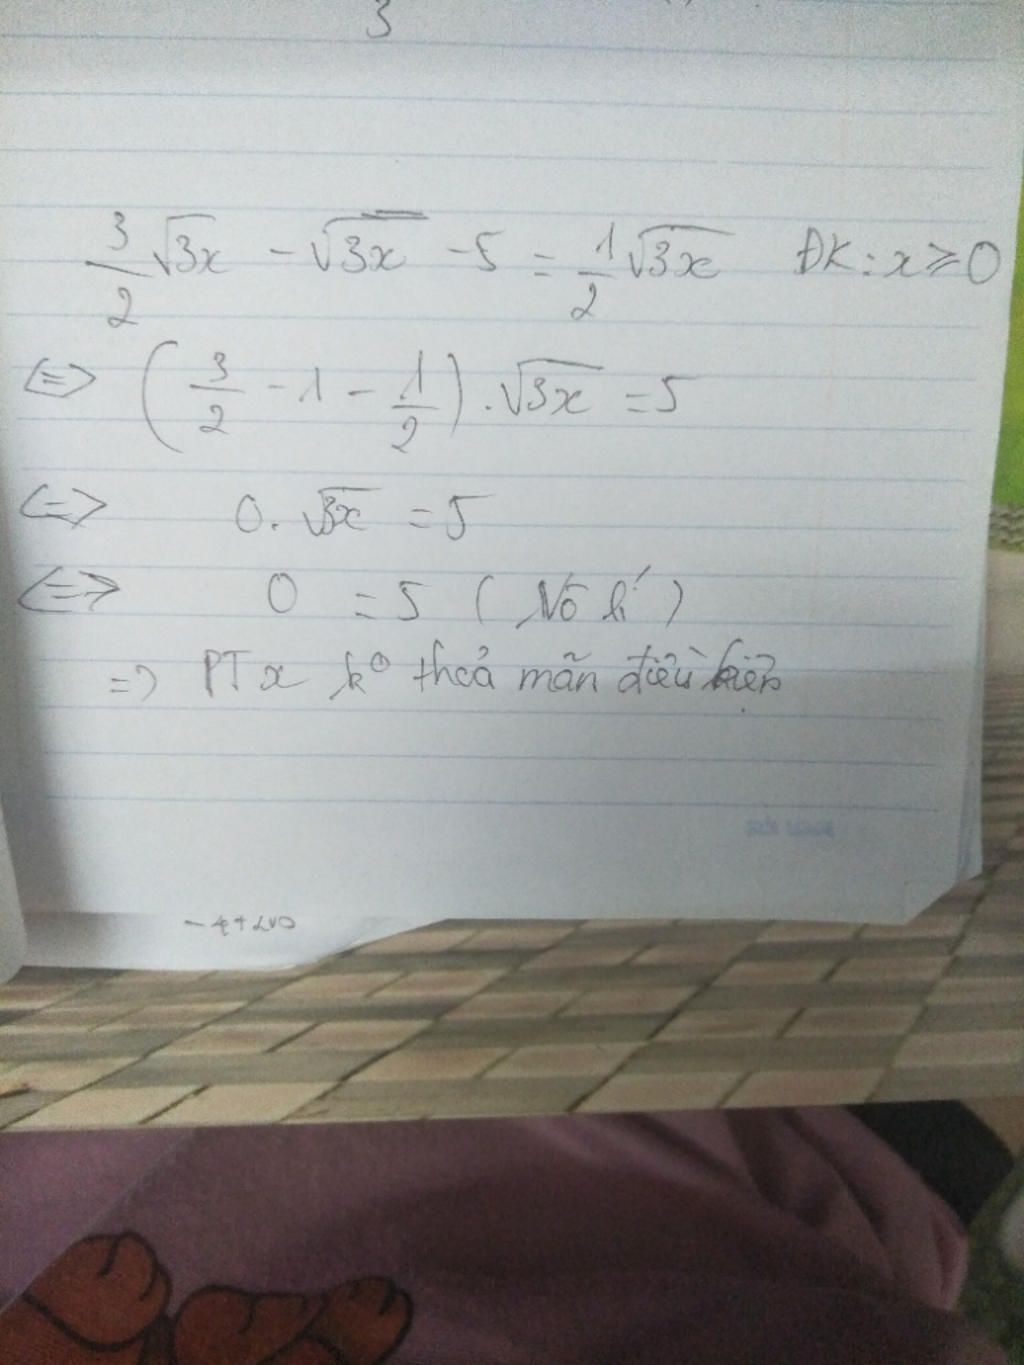 3
3/2 √3x - √3x - 5 = 1/2 √3x ĐK: x ≥ 0
<=> (3/2 - 1 - 1/2) . √3x = 5
<=> 0. √3x = 5
<=> 0 = 5 ( Vô lí )
=> PT x k⁰ thoả mãn điều kiện